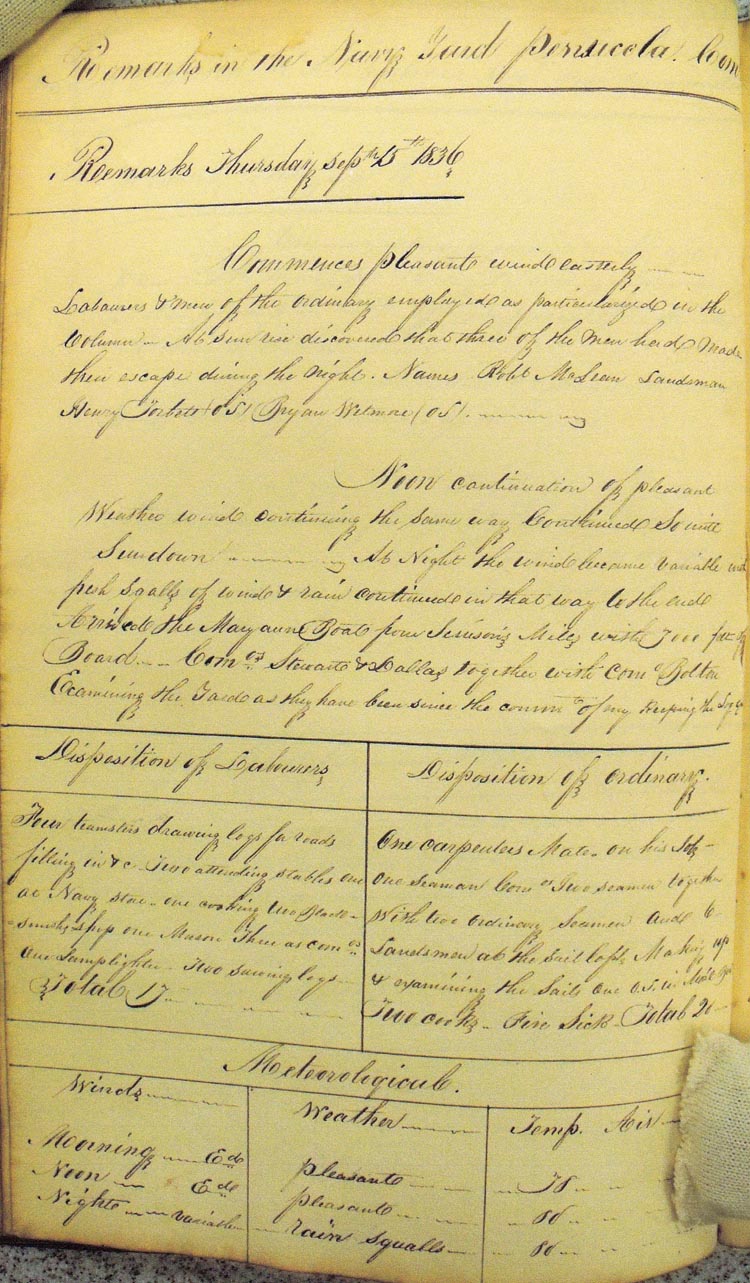 Remarks in the Navy Yard Pensacola. Com
Remarks Thursday Septh 15th 1836
Commences pleasant wind easterly
Labourers & men of the ordinary employed as particularized in the
Column - At sun rise discovered that three of the men had made
their escape during the night. Names Robt McLean Landsman
Henry (OS) Bryan Wilmore (OS).
Noon continuation of pleasant
Weather wind continuing the same way Continued so until
Sundown At Night the wind became variable with
fresh Squalls of wind & rain continued in that way to the end
Arrived the Maryann Boat from Mills with 700 feet
Board - Comos Stewart & Dallas together with Como Bolton
Examining the Yard as they have been since the commt of my keeping the Log
Disposition of Labourers
Four teamsters drawing logs for roads
filling in &c - Two attending stables one
at Navy store - one cooking two Black-
-smiths shop one Mason Three as comos
one Lamplighter - Two sawing logs
Total 17
Disposition of ordinary.
One carpenters Mate - on his
One seaman Comos Two seamen together
With two ordinary Seamen and 6
Landsmen at the Sail loft Making up
& examining the Sails one O.S. in
Two cooks - Five Sick - Total 20
Meteorological.
Winds Weather Temp. Air
Morning Ed pleasant 78
Noon Ed pleasant 80
Night variable rain Squalls 80